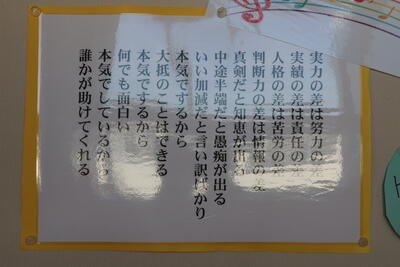 実力の差は努力の差
実績の差は責任の差
人格の差は苦労の差
判断力の差は情報の差
真剣だと知恵が出る
中途半端だと愚痴が出る
いい加減だと言い訳ばかり
本気でするから
大抵のことはできる
本気でするから
何でも面白い
本気でしているから
誰かが助けてくれる